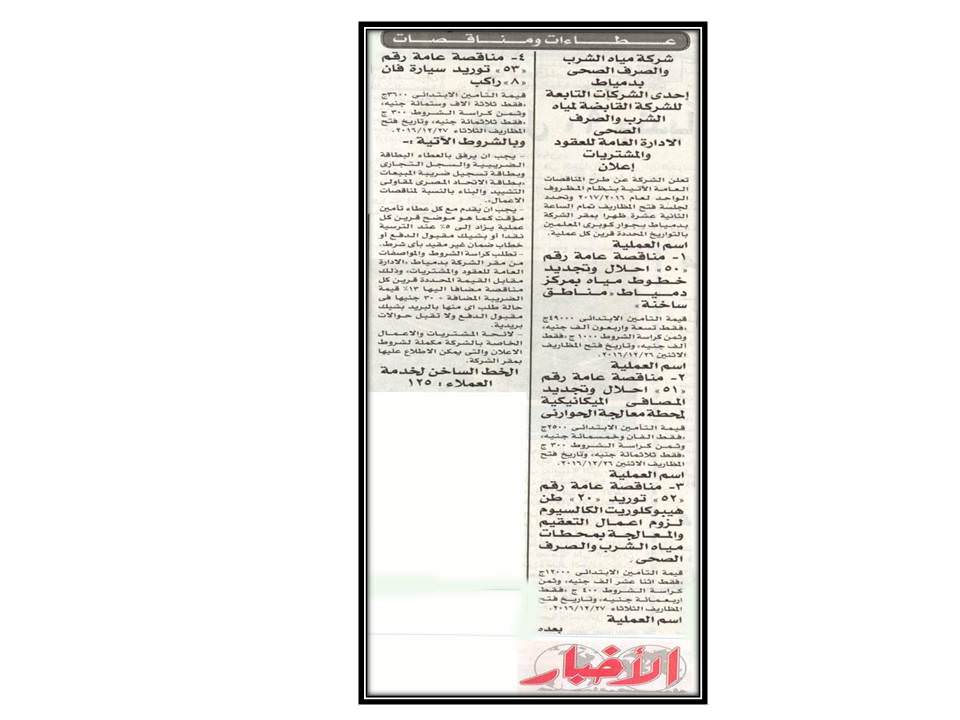 عطاءات ومناقصات
شركة مياه الشرب
والصرف الصحى
بدمياط
إحدى الشركات التابعة
للشركة القابضة لمياه
الشرب والصرف
الصحى
الادارة العامة للعقود
والمشتريات
إعلان
تعلن الشركة عن طرح المناقصات
العامة الآتية بنظام المظروف
الواحد لعام ٢٠١٧/٢٠١٦ وتحدد
لجلسة فتح المظاريف تمام الساعة
الثانية عشرة ظهرا بمقر الشركة
بدمياط بجوار كوبرى المعلمين
بالتواريخ المحددة قرين كل عملية.
اسم العملية
١- مناقصة عامة رقم
«٥٠» احلال وتجديد
خطوط مياه بمركز
دمياط «مناطق
ساخنة».
قيمة التأمين الابتدائى ٤٩٠٠٠ج
،فقط تسعة واربعون ألف جنيه،
وثمن كراسة الشروط ١٠٠٠ ج ،فقط
ألف جنيه، وتاريخ فتح المظاريف
الاثنين ٢٠١٦/١٢/٢٦.
اسم العملية
٢- مناقصة عامة رقم
«٥١» احلال وتجديد
المصافى الميكانيكية
لمحطة معالجة الحوارنى
قيمة التأمين الابتدائى ٢٥٠٠ج
،فقط الفان وخمسمائة جنيه،
وثمن كراسة الشروط ٣٠٠ ج
،فقط ثلاثمائة جنيه، وتاريخ فتح
المظاريف الاثنين ٢٠١٦/١٢/٢٦.
اسم العملية
٣- مناقصة عامة رقم
«٥٢» توريد «٢٠» طن
هيبوكلوريت الكالسيوم
لزوم اعمال التعقيم
والمعالجة بمحطات
مياه الشرب والصرف
الصحى.
قيمة التأمين الابتدائى ١٢٠٠٠ج
،فقط اثنا عشر ألف جنيه، وثمن
كراسة الشروط ٤٠٠ ج ،فقط
اربعمائة جنيه، وتاريخ فتح
المظاريف الثلاثاء ٢٠١٦/١٢/٢٧.
اسم العملية
بعده
٤- مناقصة عامة رقم
«٥٣» توريد سيارة فان
«٨» راكب
قيمة التأمين الابتدائى ٣٦٠٠ج
،فقط ثلاثة الاف وستمائة جنيه،
وثمن كراسة الشروط ٣٠٠ ج
،فقط ثلاثمائة جنيه، وتاريخ فتح
المظاريف الثلاثاء ٢٠١٦/١٢/٢٧.
وبالشروط الآتية :-
- يجب ان يرفق بالعطاء البطاقة
الضريبية والسجل التجارى
وبطاقة تسجيل ضريبة المبيعات
،بطاقة الاتحاد المصرى لمقاولى
التشييد والبناء بالنسبة لمناقصات
الاعمال،.
- يجب ان يقدم مع كل عطاء تأمين
مؤقت كما هو موضح قرين كل
عملية يزاد إلى ٥٪ عند الترسية
نقدا أو بشيك مقبول الدفع أو
خطاب ضمان غير مقيد بأى شرط.
- تطلب كراسة الشروط والمواصفات
من مقر الشركة بدمياط ،الادارة
العامة للعقود والمشتريات، وذلك
مقابل القيمة المحددة قرين كل
مناقصة مضافا اليها ١٣٪ قيمة
الضريبة المضافة + ٣٠ جنيها فى
حالة طلب اى منها بالبريد بشيك
مقبول الدفع ولا تقبل حوالات
بريدية.
- لائحة المشتريات والاعمال
الخاصة بالشركة مكملة لشروط
الاعلان والتى يمكن الاطلاع عليها
بمقر الشركة.
الخط الساخن لخدمة
العملاء : ١٢٥
الأخبار